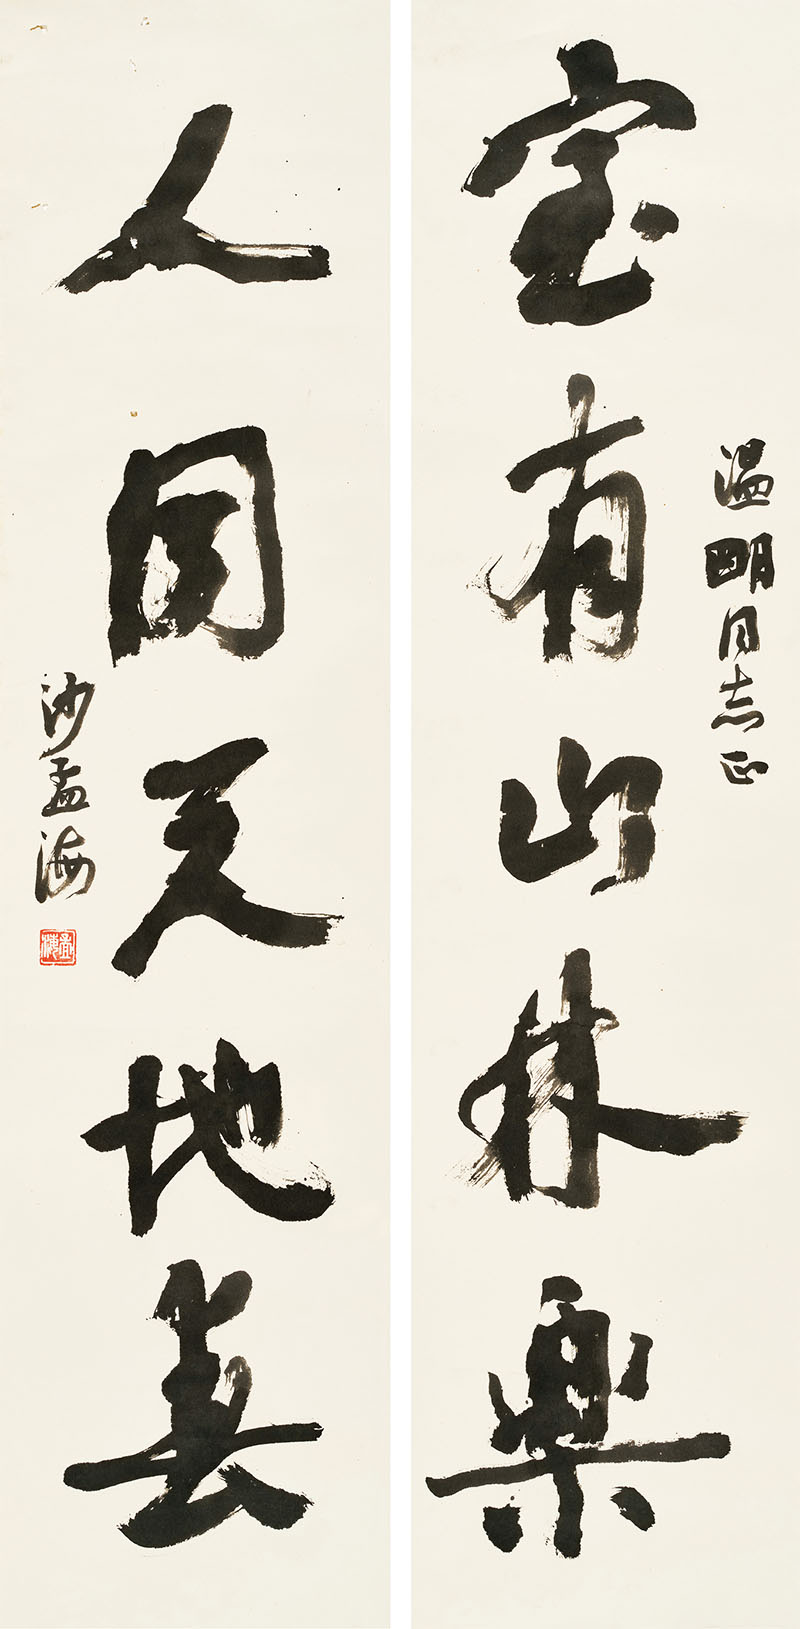 温明同志正
室有山林樂
人同天地春
沙孟海
孟海